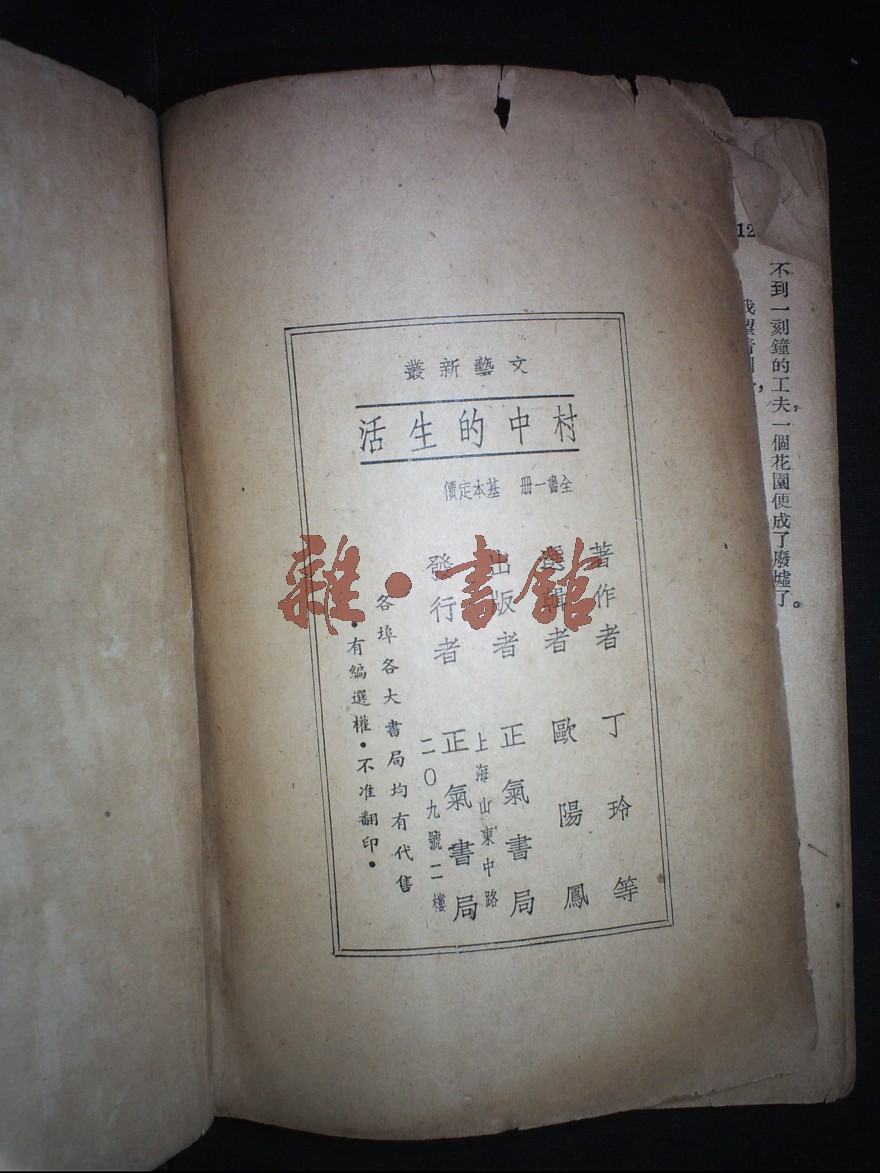 文藝新叢
村中的生活
全書一冊 基本定價
著作者 丁玲等
選輯者 歐陽鳳
出版者 正氣書局
上海山東中路
發行者 正氣書局
二〇九號二樓
各埠各大書局均有代售
•有編選權•不准翻印•
雜·書館
12
不到一刻鐘的工夫，一個花園便成了廢墟了。